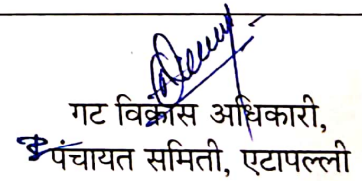 गट विकास अधिकारी,
पंचायत समिती, एटापल्ली